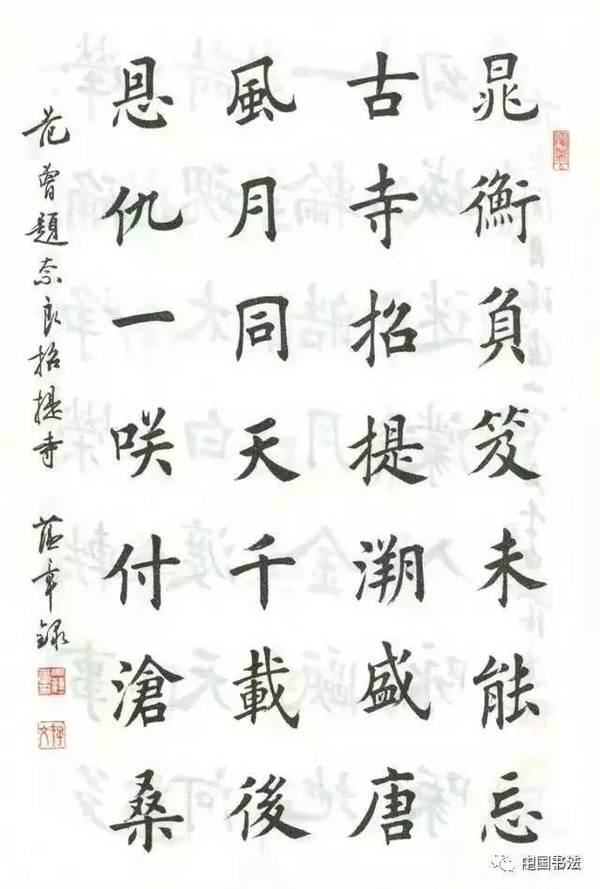 晁衡負笈未能忘
古寺招提溯盛唐
風月同天千載後
恩仇一咲付滄桑
范曾題奈良招提寺 蕴章録
中国书法